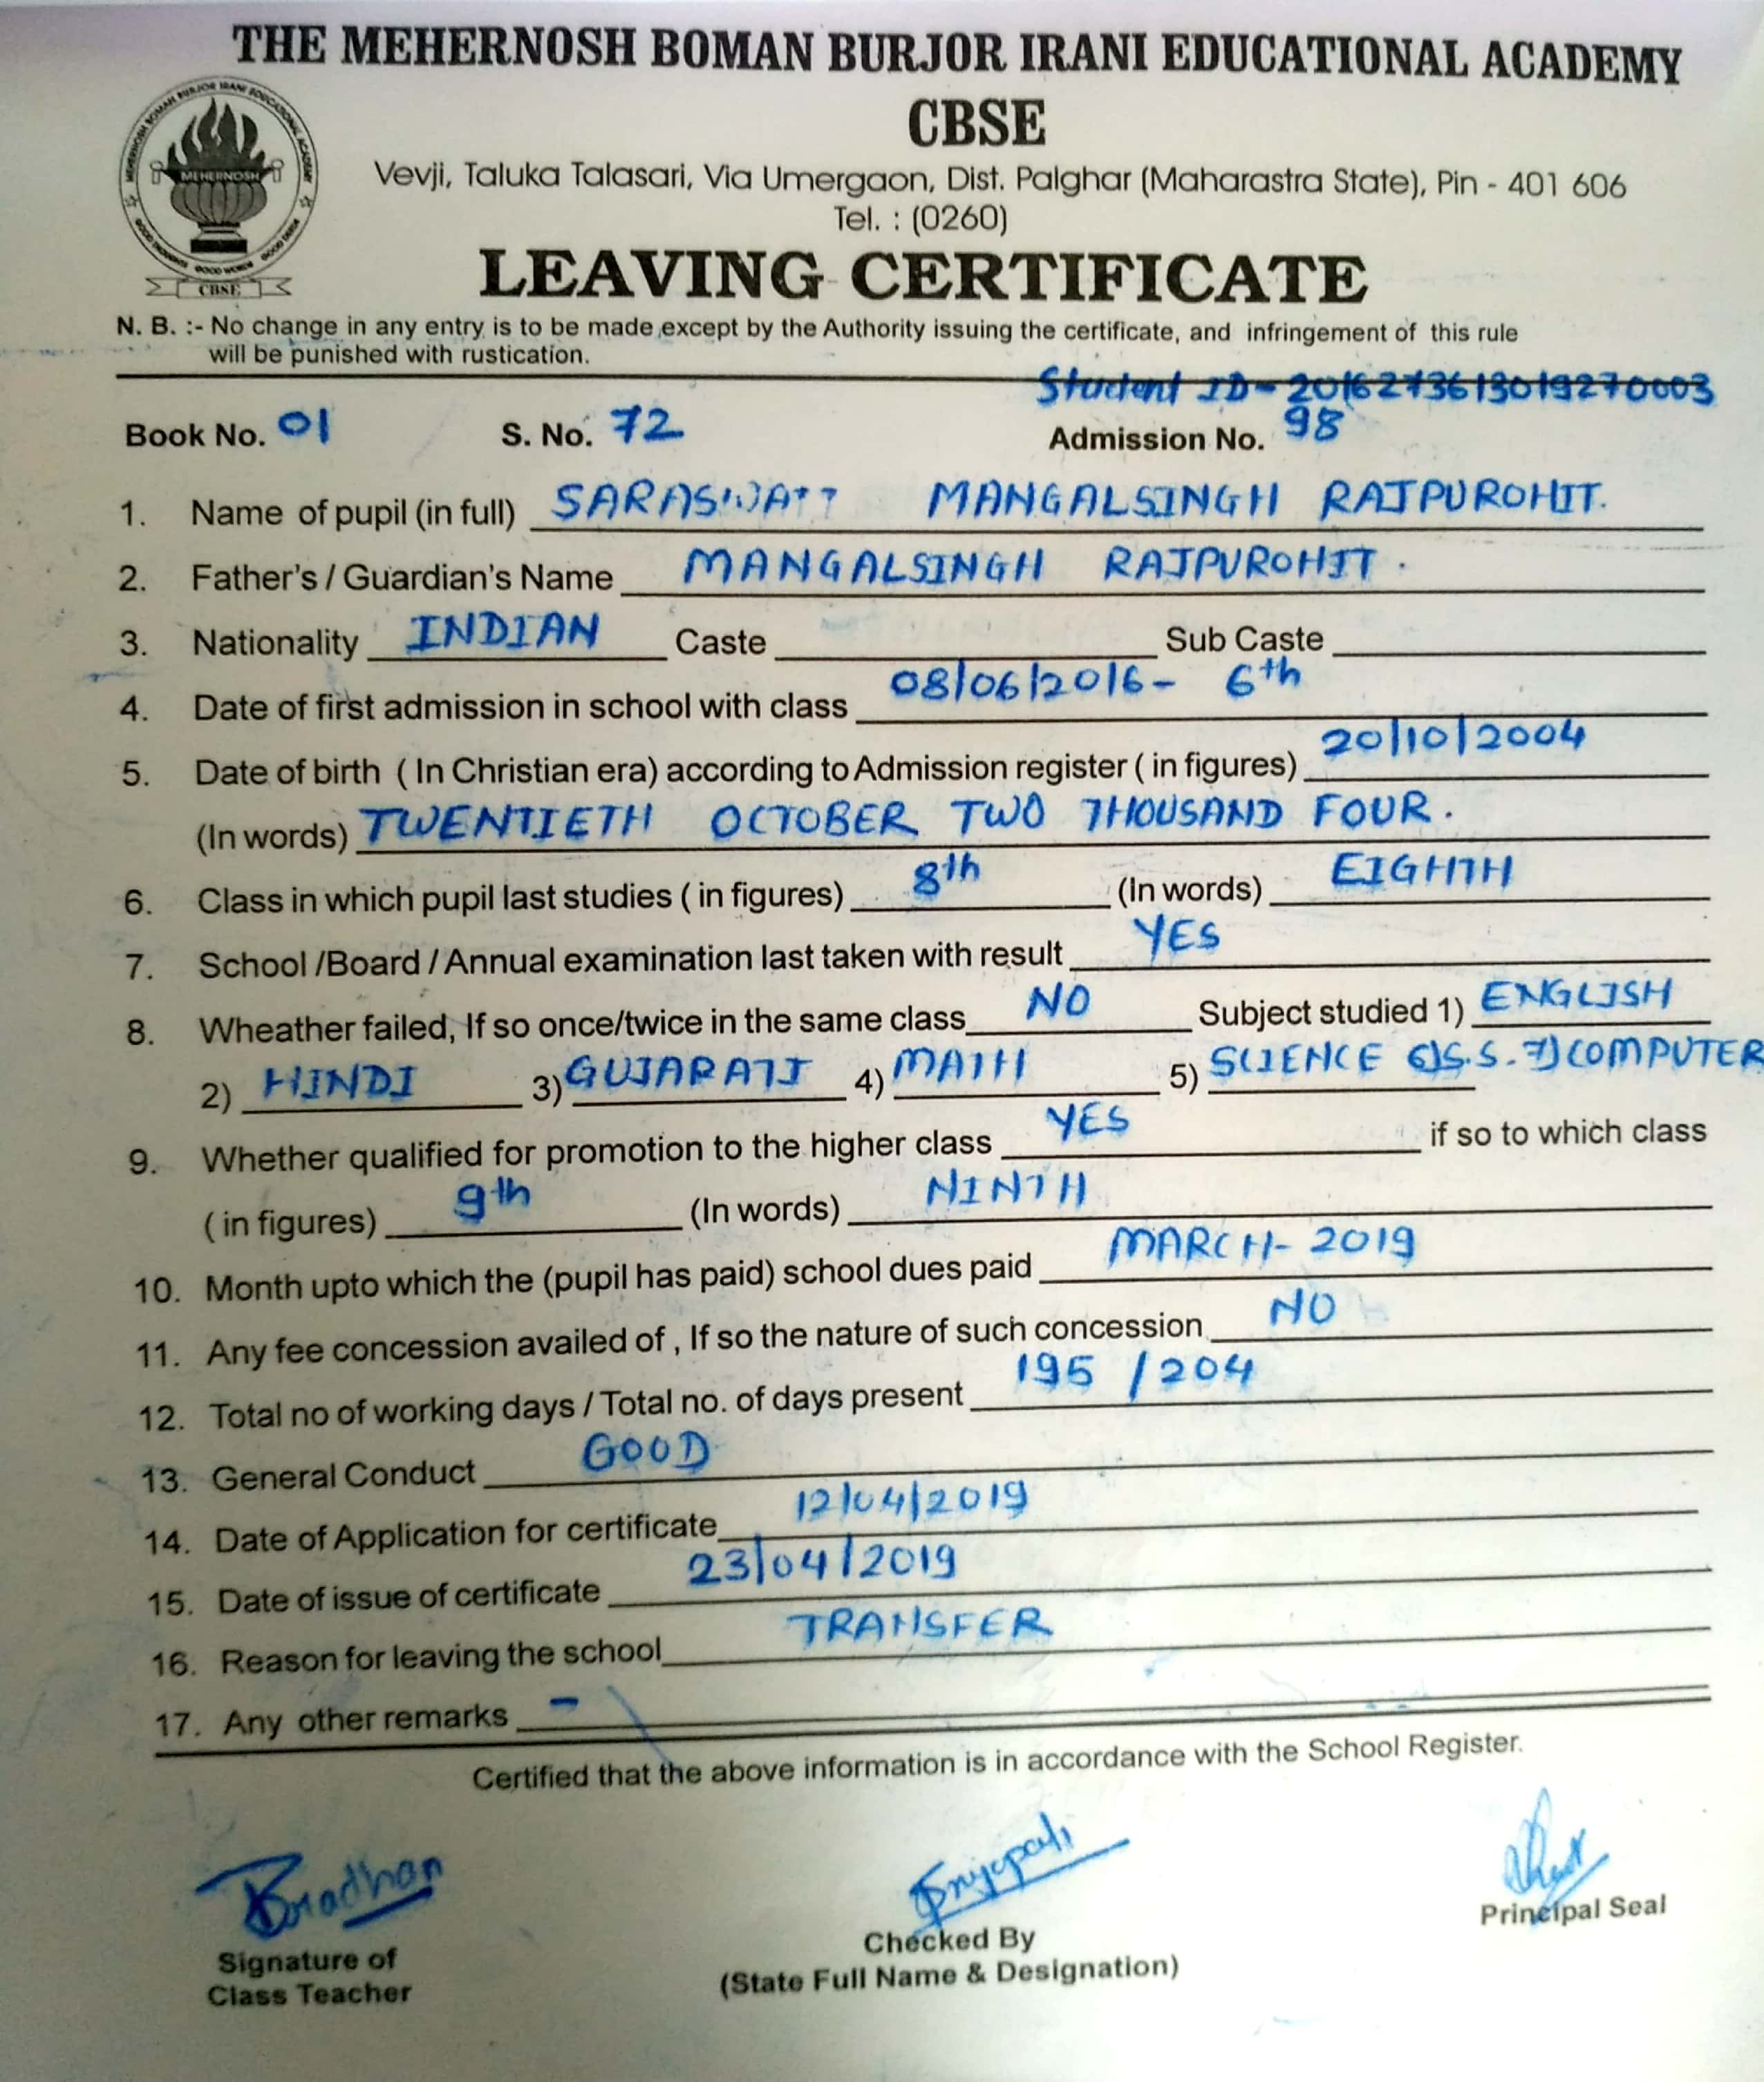 THE MEHERNOSH BOMAN BURJOR IRANI EDUCATIONAL ACADEMY
CBSE
MEHERNOSH BOMAN BURJOR IRANI EDUCATIONAL ACADEMY
MEHERNOSH
GOOD WORDS
CBSE
Vevji, Taluka Talasari, Via Umergaon, Dist. Palghar (Maharastra State), Pin - 401 606
Tel. : (0260)
LEAVING CERTIFICATE
N. B. :- No change in any entry is to be made except by the Authority issuing the certificate, and infringement of this rule
will be punished with rustication.
Student ID-
Book No. 01 S. No. 72 Admission No. 98
1. Name of pupil (in full) MANGALSINGH RAJPUROHIT.
2. Father's / Guardian's Name MANGALSINGH RAJPUROHIT.
3. Nationality INDIAN Caste Sub Caste
4. Date of first admission in school with class 08/06/2016- 6th
5. Date of birth ( In Christian era) according to Admission register ( in figures) 20/10/2004
(In words) TWENTIETH OCTOBER TWO THOUSAND FOUR.
6. Class in which pupil last studies ( in figures) 8th (In words) EIGHTH
7. School /Board / Annual examination last taken with result YES
8. Wheather failed, If so once/twice in the same class NO Subject studied 1) ENGLISH
2) HINDI 3) GUJARATI 4) MATH 5) SCIENCE 6) S.S. 7) COMPUTER
9. Whether qualified for promotion to the higher class YES if so to which class
( in figures) 9th (In words) NINTH
10. Month upto which the (pupil has paid) school dues paid MARCH- 2019
11. Any fee concession availed of , If so the nature of such concession NO
12. Total no of working days / Total no. of days present 195 / 204
13. General Conduct GOOD
14. Date of Application for certificate 12/04/2019
15. Date of issue of certificate 23/04/2019
16. Reason for leaving the school TRANSFER
17. Any other remarks -
Certified that the above information is in accordance with the School Register.
Signature of
Class Teacher
Checked By
(State Full Name & Designation)
Principal Seal